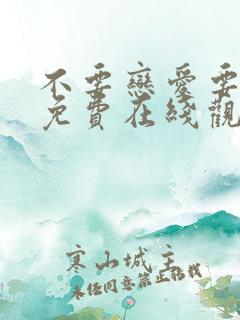 不要戀愛要
免費在綫觀
寒山城主
未任同意禁止轉載